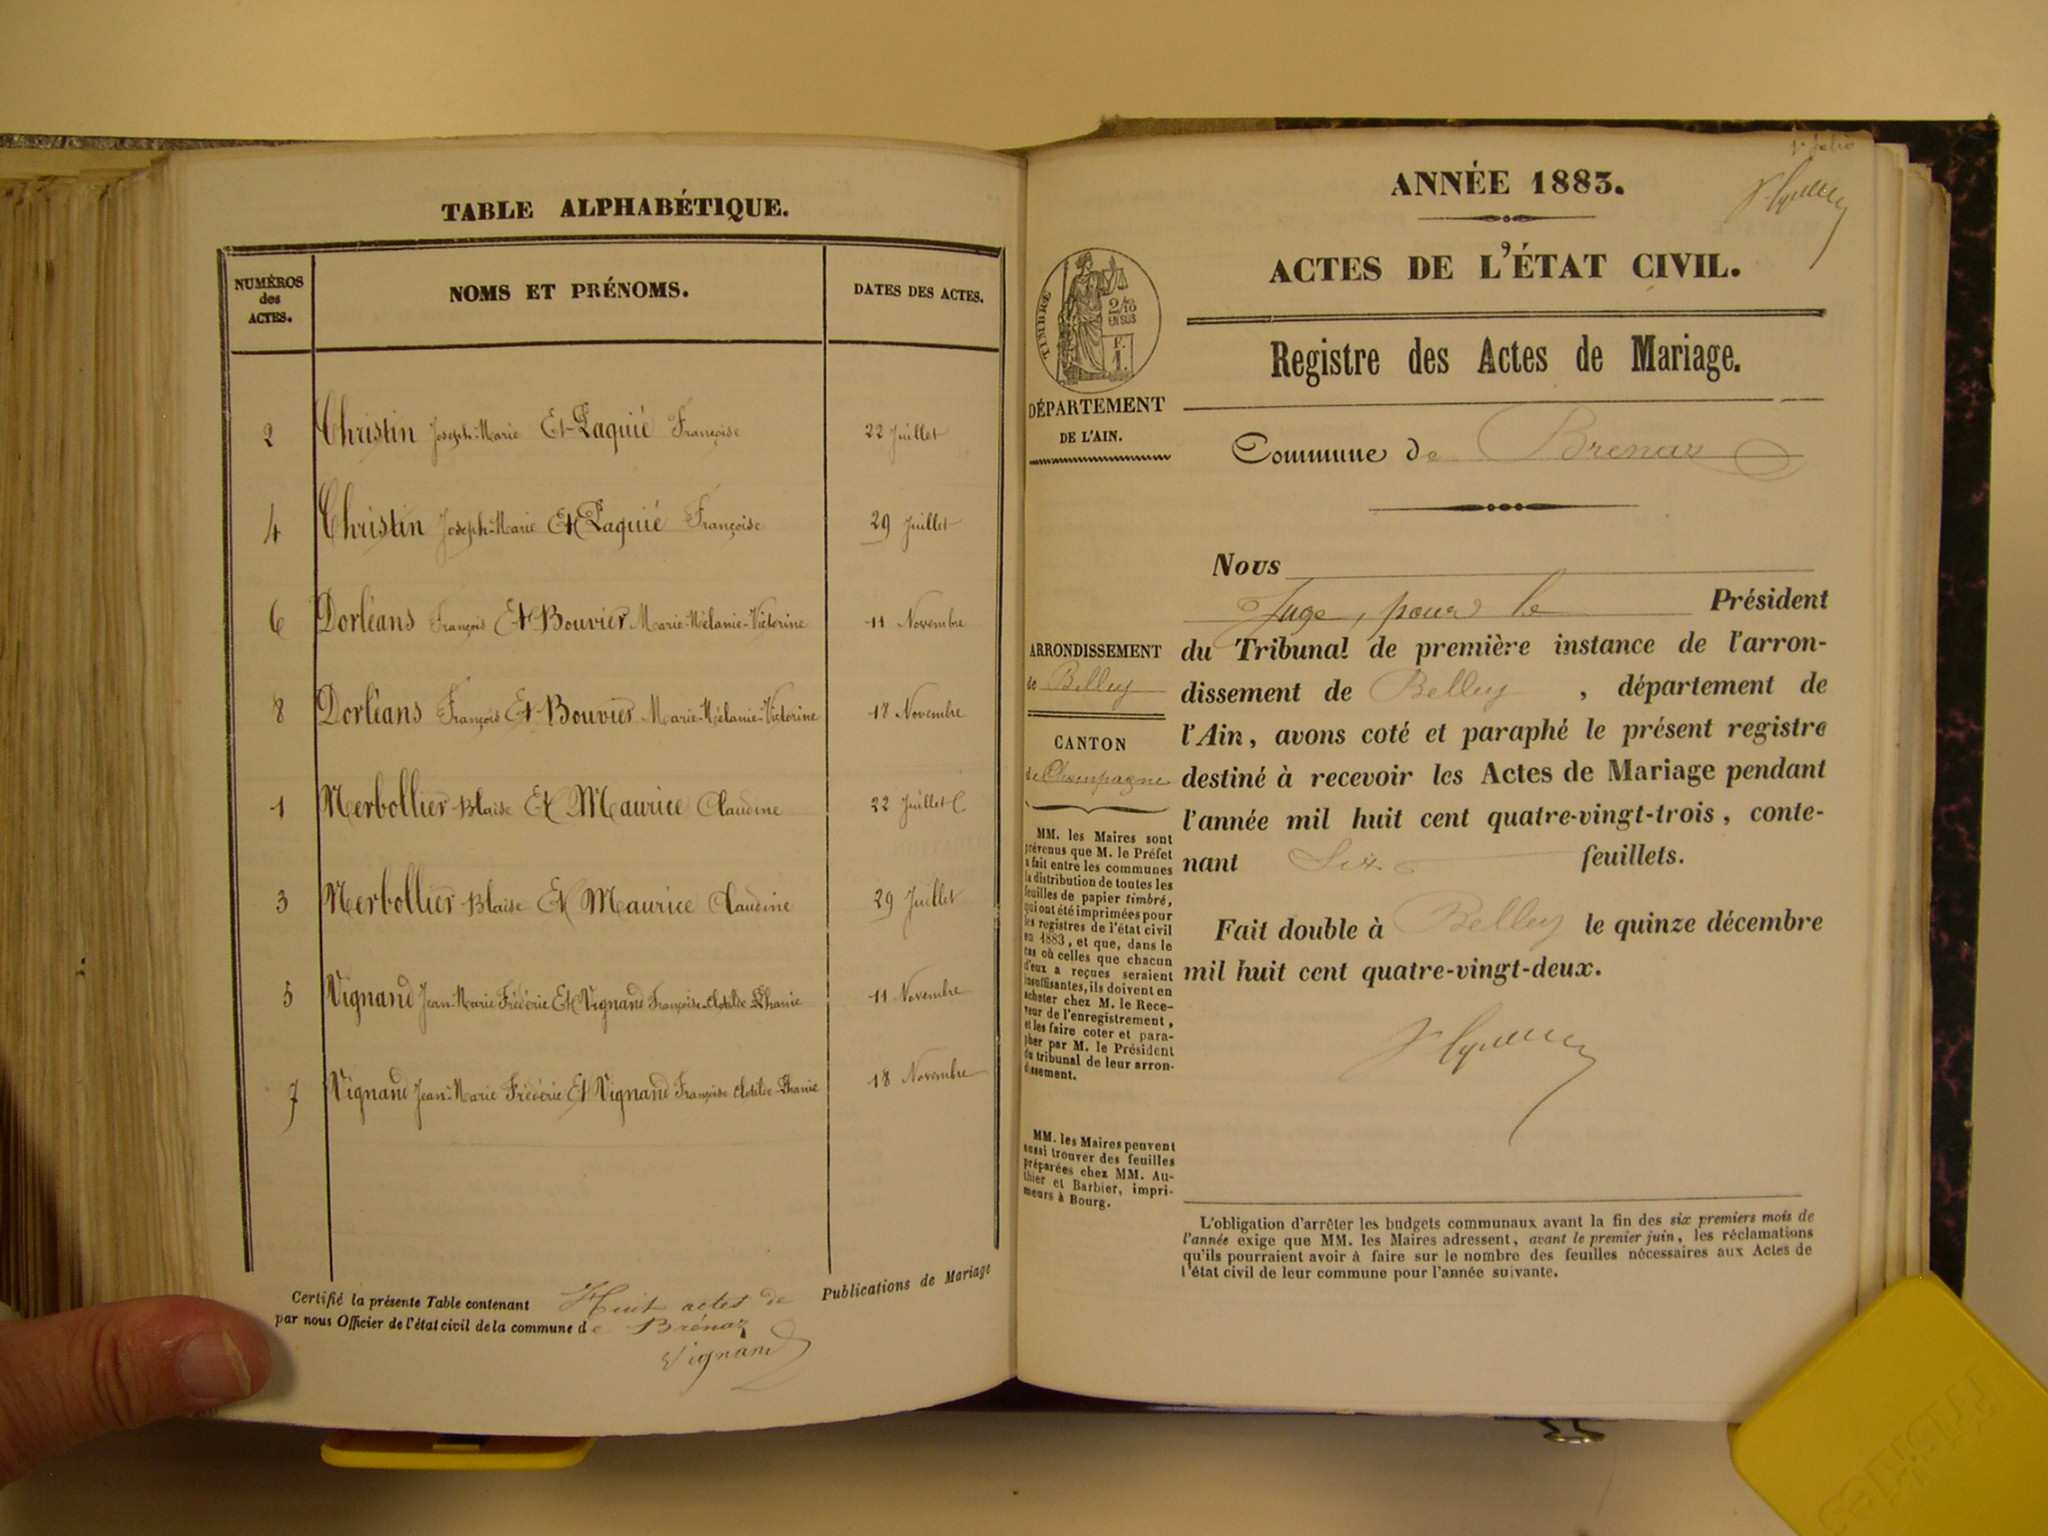 TABLE ALPHABÉTIQUE.
NUMÉROS
des
ACTES.
NOMS ET PRÉNOMS.
DATES DES ACTES.
2 Christin Joseph-Marie Et Laquié Françoise 22 Juillet
4 Christin Joseph-Marie Et Laquié Françoise 29 Juillet
6 Dorléans François Et Bouvier Marie-Mélanie-Victorine 11 Novembre
8 Dorléans François Et Bouvier Marie-Mélanie-Victorine 18 Novembre
1 Merbollier Blaise Et Maurice Claudine 22 Juillet
3 Merbollier Blaise Et Maurice Claudine 29 Juillet
5 Vignand Jean-Marie Frédéric Et Vignand Françoise-Clotilde 11 Novembre
7 Vignand Jean-Marie Frédéric Et Vignand Françoise Clotilde 18 Novembre
Certifié la présente Table contenant Huit actes de Publications de Mariage
par nous Officier de l'état civil de la commune de Brénaz
Vignand
1er folio
ANNÉE 1883.
ACTES DE L'ÉTAT CIVIL.
Registre des Actes de Mariage.
TIMBRE
2/10
EN SUS
F.
1.
DÉPARTEMENT
DE L'AIN.
Commune de Brenaz
Nous
Juge, pour le Président
du Tribunal de première instance de l'arron-
dissement de Belley, département de
l'Ain, avons coté et paraphé le présent registre
destiné à recevoir les Actes de Mariage pendant
l'année mil huit cent quatre-vingt-trois, conte-
nant Six feuillets.
Fait double à Belley le quinze décembre
mil huit cent quatre-vingt-deux.
ARRONDISSEMENT
de Belley
CANTON
de Champagne
MM. les Maires sont
prévenus que M. le Préfet
a fait entre les communes
la distribution de toutes les
feuilles de papier timbré,
qui ont été imprimées pour
les registres de l'état civil
en 1883, et que, dans le
cas où celles que chacun
d'eux a reçues seraient
insuffisantes, ils doivent en
acheter chez M. le Rece-
veur de l'enregistrement,
et les faire coter et para-
pher par M. le Président
du tribunal de leur arron-
dissement.
MM. les Maires peuvent
aussi trouver des feuilles
préparées chez MM. Au-
thier et Barbier, impri-
meurs à Bourg.
L'obligation d'arrêter les budgets communaux avant la fin des six premiers mois de
l'année exige que MM. les Maires adressent, avant le premier juin, les réclamations
qu'ils pourraient avoir à faire sur le nombre des feuilles nécessaires aux Actes de
l'état civil de leur commune pour l'année suivante.